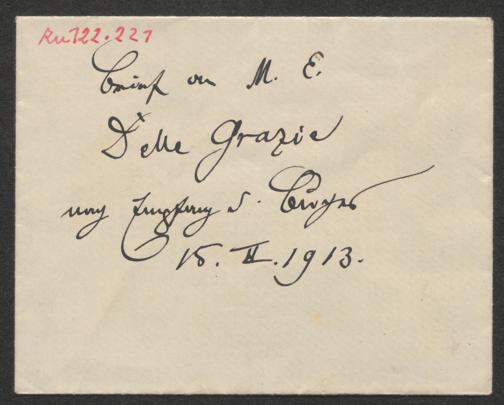 Ru122.221
Brief an M. E.
Delle Grazie
nach Empfang d. Buches
15. II. 1913.